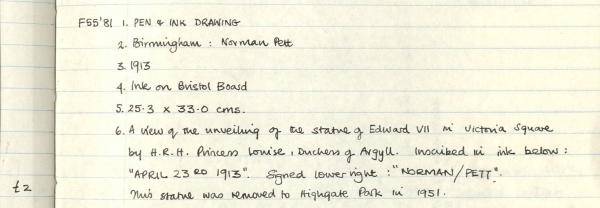 F55'81 1. PEN & INK DRAWING
2. Birmingham : Norman Pett
3. 1913
4. Ink on Bristol Board
5. 25.3 x 33.0 cms.
6. A view of the unveiling of the statue of Edward VII in Victoria Square
by H.R.H. Princess Louise, Duchess of Argyll. Inscribed in ink below:
"APRIL 23RD 1913". Signed lower right: "NORMAN/PETT".
£2 This statue was removed to Highgate Park in 1951.